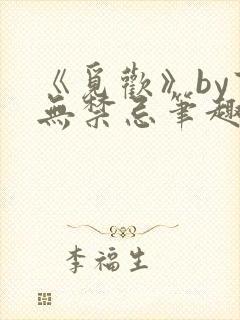 《覓歡》by
無禁忌筆趣
李福生